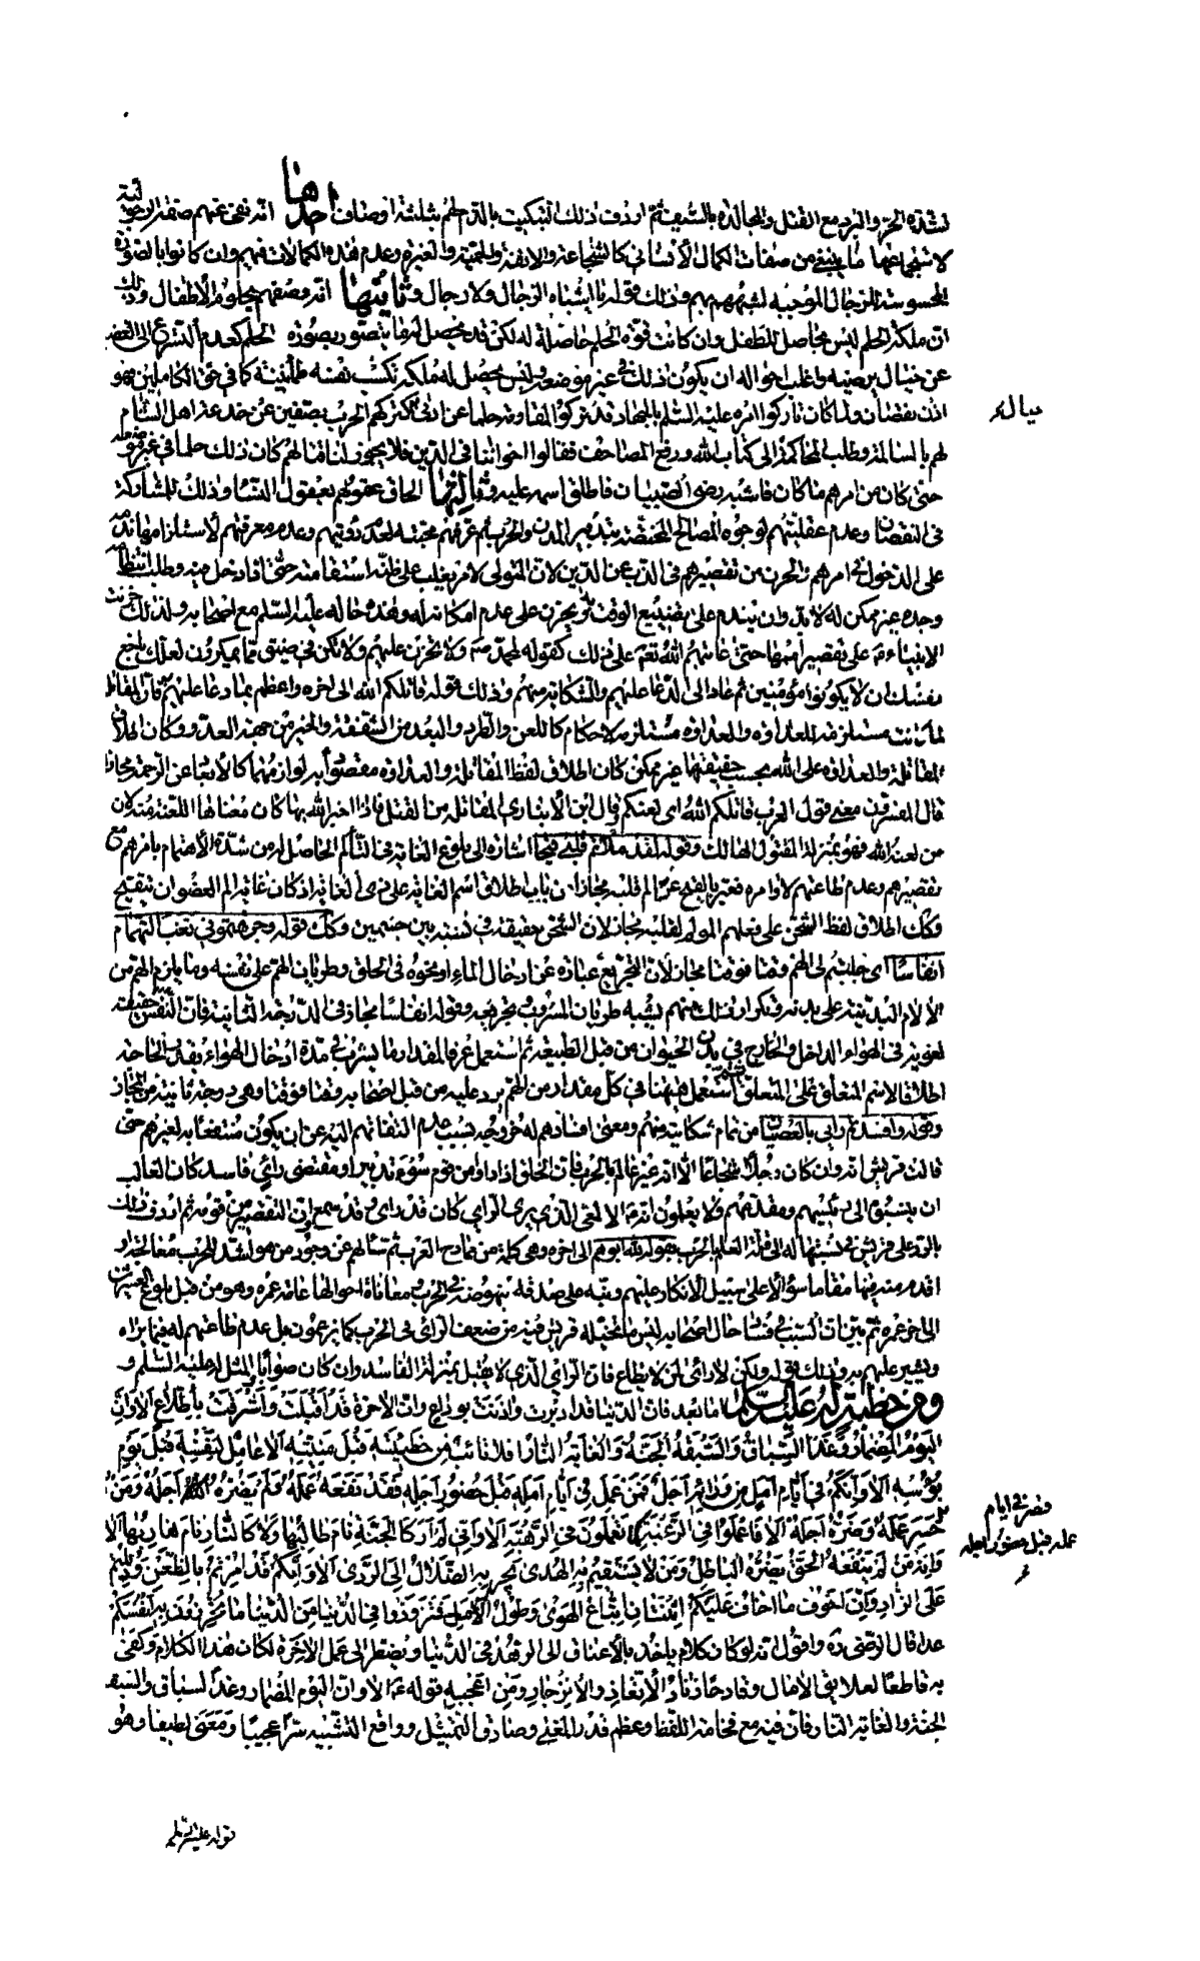 لشدة الحر والبرد مع القتل والمجالدة بالسيف ثم اردف ذلك التبكيت بالذم لهم بثلثة اوصاف احدها انه نفى عنهم صفة الرجولية
لاستجماعها ما ينبغي من صفات الكمال الانساني كالشجاعة والانفة والحمية والغيرة وعدم هذه الكمالات فيهم وان كانوا بالصورة
المحسوسة للرجال الموجبة لشبههم بهم وذلك قوله يا اشباه الرجال ولا رجال وثانيها انه وصفهم بحلوم الاطفال وذلك
ان ملكة الحلم ليس بحاصل للطفل وان كانت قوة الحلم حاصلة له لكن قد يحصل له ما يتصور بصورة الحلم كعدم التسرع الى الغضب
عن خيال يرضيه واغلب احواله ان يكون ذلك في غير موضعه وليس يحصل له ملكة تكسب نفسه طمأنينة كما في حق الكاملين فهو
اذن نقصان ولما كان تاركوا امره عليه السلم بالجهاد قد تركوا المقاومة حلما عن ادنى تركهم الحرب بصفين عن خدعة اهل الشام
لهم بالمسالمة وطلب المحاكمة الى كتاب الله ورفع المصاحف فقالوا اخواننا في الدين فلا يجوز لنا قتالهم كان ذلك حلما في غير موضعه
حتى كان من امرهم ما كان فاشبه رضى الصبيان فاطلق اسمه عليه وثالثها الحاق عقولهم بعقول النساء وذلك للمشاركة
في النقصان وعدم عقليتهم لوجوه المصالح المختصة بتدبير المدن والحرب ثم عرفهم محبته لعدم رؤيتهم وعدم معرفتهم لاستلزامها ندمه
على الدخول في امرهم والحزن من تقصيرهم في الذب عن الدين لان المتولى لامر يغلب على ظنه استقامته حتى اذا دخل فيه وطلب انتظامه
وجده غير ممكن له لا بد وان يندم على تضييع الوقت ويحزن على عدم امكانه له وهذه حاله عليه السلم مع اصحابه ولذلك حزنت
الانبياء ع م على تقصير اممها حتى عاتبهم الله تعم على ذلك كقوله لمحمد ص ولا تحزن عليهم ولا تكن في ضيق مما يمكرون لعلك باخع
نفسك ان لا يكونوا مؤمنين ثم عاد الى الدعاء عليهم والشكاية منهم وذلك قوله قاتلكم الله الى اخره واعظم بما دعا عليهم فان المقاتلة
لما كانت مستلزمة للعداوة والعداوة مستلزمة لاحكام كاللعن والطرد والبعد من الشفقة والخير من جهة العدو وكان اطلاق
المقاتلة والعداوة على الله بحسب حقيقتها غير ممكن كان اطلاق لفظ المقاتلة والعداوة مقصودا به لوازمهما كالابعاد عن الرحمة مجازا
قال المفسرون معنى قول العرب قاتلكم الله اى لعنكم وقال ابن الانباري المقاتلة من القتل فاذا اخبر الله بها كان معناها اللعنة منه لان
من لعنه الله فهو بمنزلة المقتول الهالك وقوله لقد ملاتم قلبي قيحا اشارة الى بلوغ الغاية في التألم الحاصل له من شدة الاهتمام بامرهم مع
تقصيرهم وعدم طاعتهم لاوامره فعبر بالقيح عن الم قلبه مجازا من باب اطلاق اسم الغاية على ذي الغاية اذ كان غاية الم العضو ان يتقيح
وكك اطلاق لفظ الشحن على فعلهم المولم لقلبه مجاز لان الشحن حقيقة في نسبة بين جسمين وكك قوله وجرعتموني نغب التهمام
انفاسا اى جلبتم لى الهم وقتا فوقتا مجاز لان التجريع عبارة عن ادخال الماء او نحوه في الحلق وطريان الهم على نفسه وما يلزم الهم من
الالام البدنية على بدنه وتكرار ذلك منهم يشبه طريان المشروب وتجريعه وقوله انفاسا مجاز في الدرجة الثانية فان النفس حقيقة
لغوية في الهواء الداخل والخارج في بدن الحيوان من قبل الطبيعة ثم استعمل عرفا لمقدار ما يشرب في مدة ادخال الهواء بقدر الحاجة
اطلاقا لاسم المتعلق على المتعلق ثم استعمل ههنا في كل مقدار من الهم يرد عليه من قبل اصحابه وقتا فوقتا وهى درجة ثانية من المجاز
وقوله وافسدتم رايي بالعصيان من تمام شكايته منهم ومعنى افسادهم له خروجه بسبب عدم التفاتهم اليه عن ان يكون منتفعا به لغيرهم حتى
قالت قريش انه وان كان رجلا شجاعا الا انه غير عالم بالحرب فان الخلق اذا راوا من قوم سوء تدبير او مقتضى راى فاسد كان الغالب
ان ينسبوه الى رئيسهم ومقدمهم ولا يعلمون انه ع م الالمعي الذي يرى الراى كان قد راى وقد سمع وان التقصير من قومه ثم اردف ذلك
بالرد على قريش في نسبتها له الى قلة العلم بالحرب بقوله لله ابوهم الى اخره وهى كلمة من ممادح العرب ثم سألهم عن وجود من هو اشد للحرب معالجة او
اقدم منه فيها مقاما سؤالا على سبيل الانكار عليهم ونبه على صدقه بنهوضه في الحرب ومعاناة احوالها عامة عمره وهو من قبل بلوغ العشرين
الى اخر عمره ثم بين ان السبب في فساد حال اصحابه ليس ما تخيله قريش فيه من ضعف الراى في الحرب كما يزعمون بل عدم طاعتهم له فيما يراه
ويشير عليهم به وذلك قوله ولكن لا راى لمن لا يطاع فان الراى الذي لا يقبل بمنزلة الفاسد وان كان صوابا والمثل له عليه السلم و
ومن خطبة له عليه السلم اما بعد فان الدنيا قد ادبرت واذنت بوداع وان الاخرة قد اقبلت واشرفت باطلاع الا وان
اليوم المضمار وغدا السباق والسبقة الجنة والغاية النار افلا تائب من خطيئته قبل منيته الا عامل لنفسه قبل يوم
بؤسه الا وانكم في ايام امل من ورائه اجل فمن عمل في ايام امله قبل حضور اجله فقد نفعه عمله ولم يضرره اجله ومن
خسر عمله وضره اجله الا فاعملوا في الرغبة كما تعملون في الرهبة الا واني لم ار كالجنة نام طالبها ولا كالنار نام هاربها الا
وانه من لم ينفعه الحق يضرره الباطل ومن لا يستقيم به الهدى يجر به الضلال الى الردى الا وانكم قد امرتم بالظعن ودللتم
على الزاد وان اخوف ما اخاف عليكم اثنتان اتباع الهوى وطول الامل فتزودوا في الدنيا من الدنيا ما تحرزون به انفسكم
غدا قال الرضي ره واقول انه لو كان كلام ياخذ بالاعناق الى الزهد في الدنيا ويضطر الى عمل الاخرة لكان هذا الكلام وكفى
به قاطعا لعلائق الامال وقادحا زناد الاتعاظ والازدجار ومن اعجبه قوله ع م الا وان اليوم المضمار وغدا السباق والسبقة
الجنة والغاية النار فان فيه مع فخامة اللفظ وعظم قدر المعنى وصادق التمثيل وواقع التشبيه سرا عجيبا ومعنى لطيفا وهو
قصر في ايام
عمله قبل حضور اجله
قوله عليه السلم